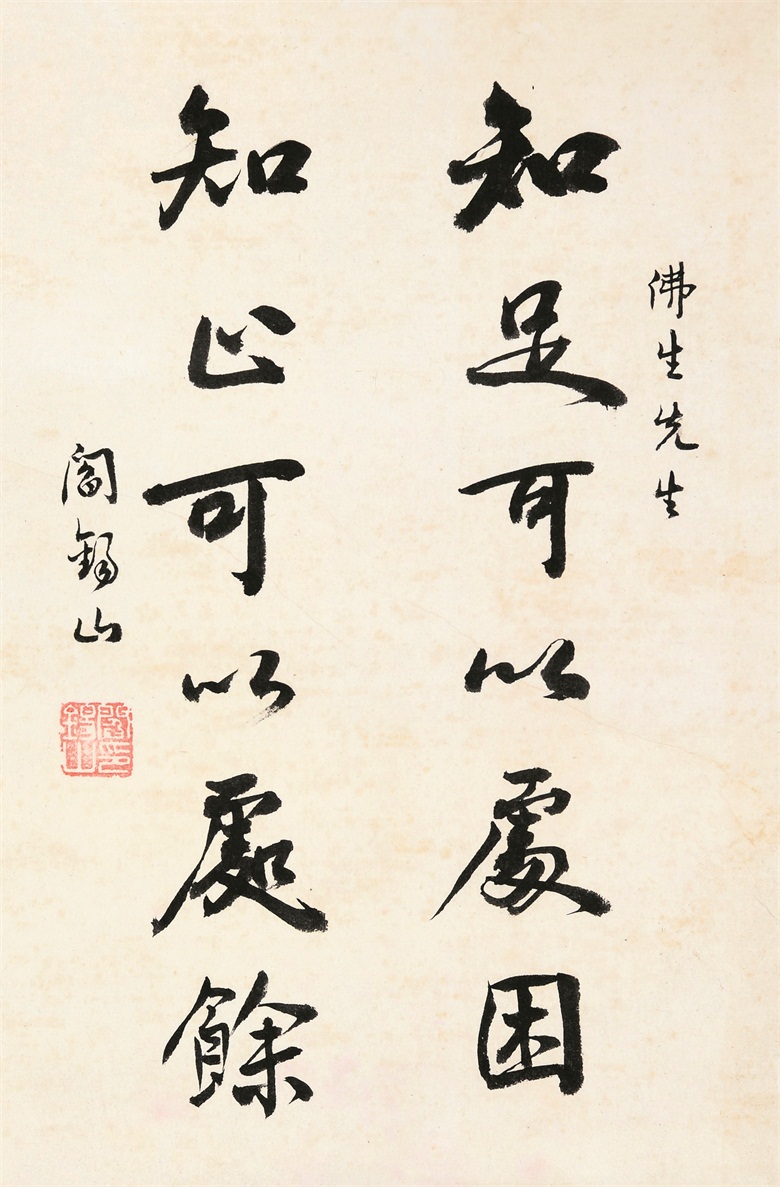 佛生先生
知足可以處困
知止可以處餘
閻錫山
閻錫山印